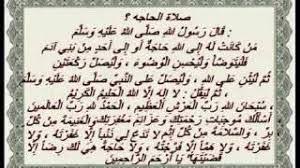 صلاة الحاجه ؟
قَالَ رَسُولُ اللهِ صَلَّى اللهُ عَلَيْهِ وَسَلَّمَ
مَنْ كَانَتْ لَهُ إِلَى اللهِ حَاجَةٌ أَوْ إِلَى أَحَدٍ مِنْ بَنِي آدَمَ
فَلْيَتَوَضَّأْ وَلْيُحْسِنِ الْوُضُوءَ ، وَلْيُصَلِّ رَكْعَتَيْنِ
ثُمَّ لْيُثْنِ عَلَى اللهِ ، وَلْيُصَلِّ عَلَى النَّبِيِّ صَلَّى اللهُ عَلَيْهِ وَسَلَّمَ
، ثُمَّ لْيَقُلْ : لَا إِلَهَ إِلَّا اللهُ الْحَلِيمُ الْكَرِيمُ
، سُبْحَانَ اللهِ رَبِّ الْعَرْشِ الْعَظِيمِ ، الْحَمْدُ لِلهِ رَبِّ الْعَالَمِينَ
أَسْأَلُكَ مُوجِبَاتِ رَحْمَتِكَ وَعَزَائِمَ مَغْفِرَتِكَ ، وَالْغَنِيمَةَ مِنْ كُلِّ
بِرٍّ ، وَالسَّلَامَةَ مِنْ كُلِّ إِثْمٍ لَا تَدَعْ لِي ذَنْبًا إِلَّا غَفَرْتَهُ ، وَلَا
هَمًّا إِلَّا فَرَّجْتَهُ ، وَلَا حَاجَةً هِيَ لَكَ رِضًا إِلَّا
قَضَيْتَهَا يَا أَرْحَمَ الرَّاحِمِينَ